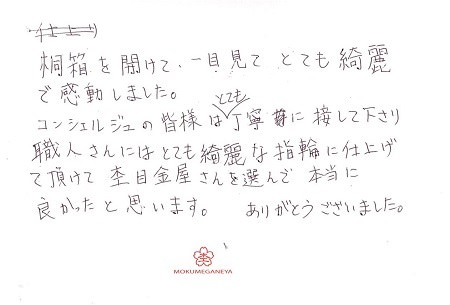 桐箱を開けて、一目見て とても綺麗
で感動しました。
とても
コンシェルジュの皆様は丁寧に接して下さり
職人さんにはとても綺麗な指輪に仕上げ
て頂けて 杢目金屋さんを選んで 本当に
良かったと思います。 ありがとうございました。
MOKUMEGANEYA